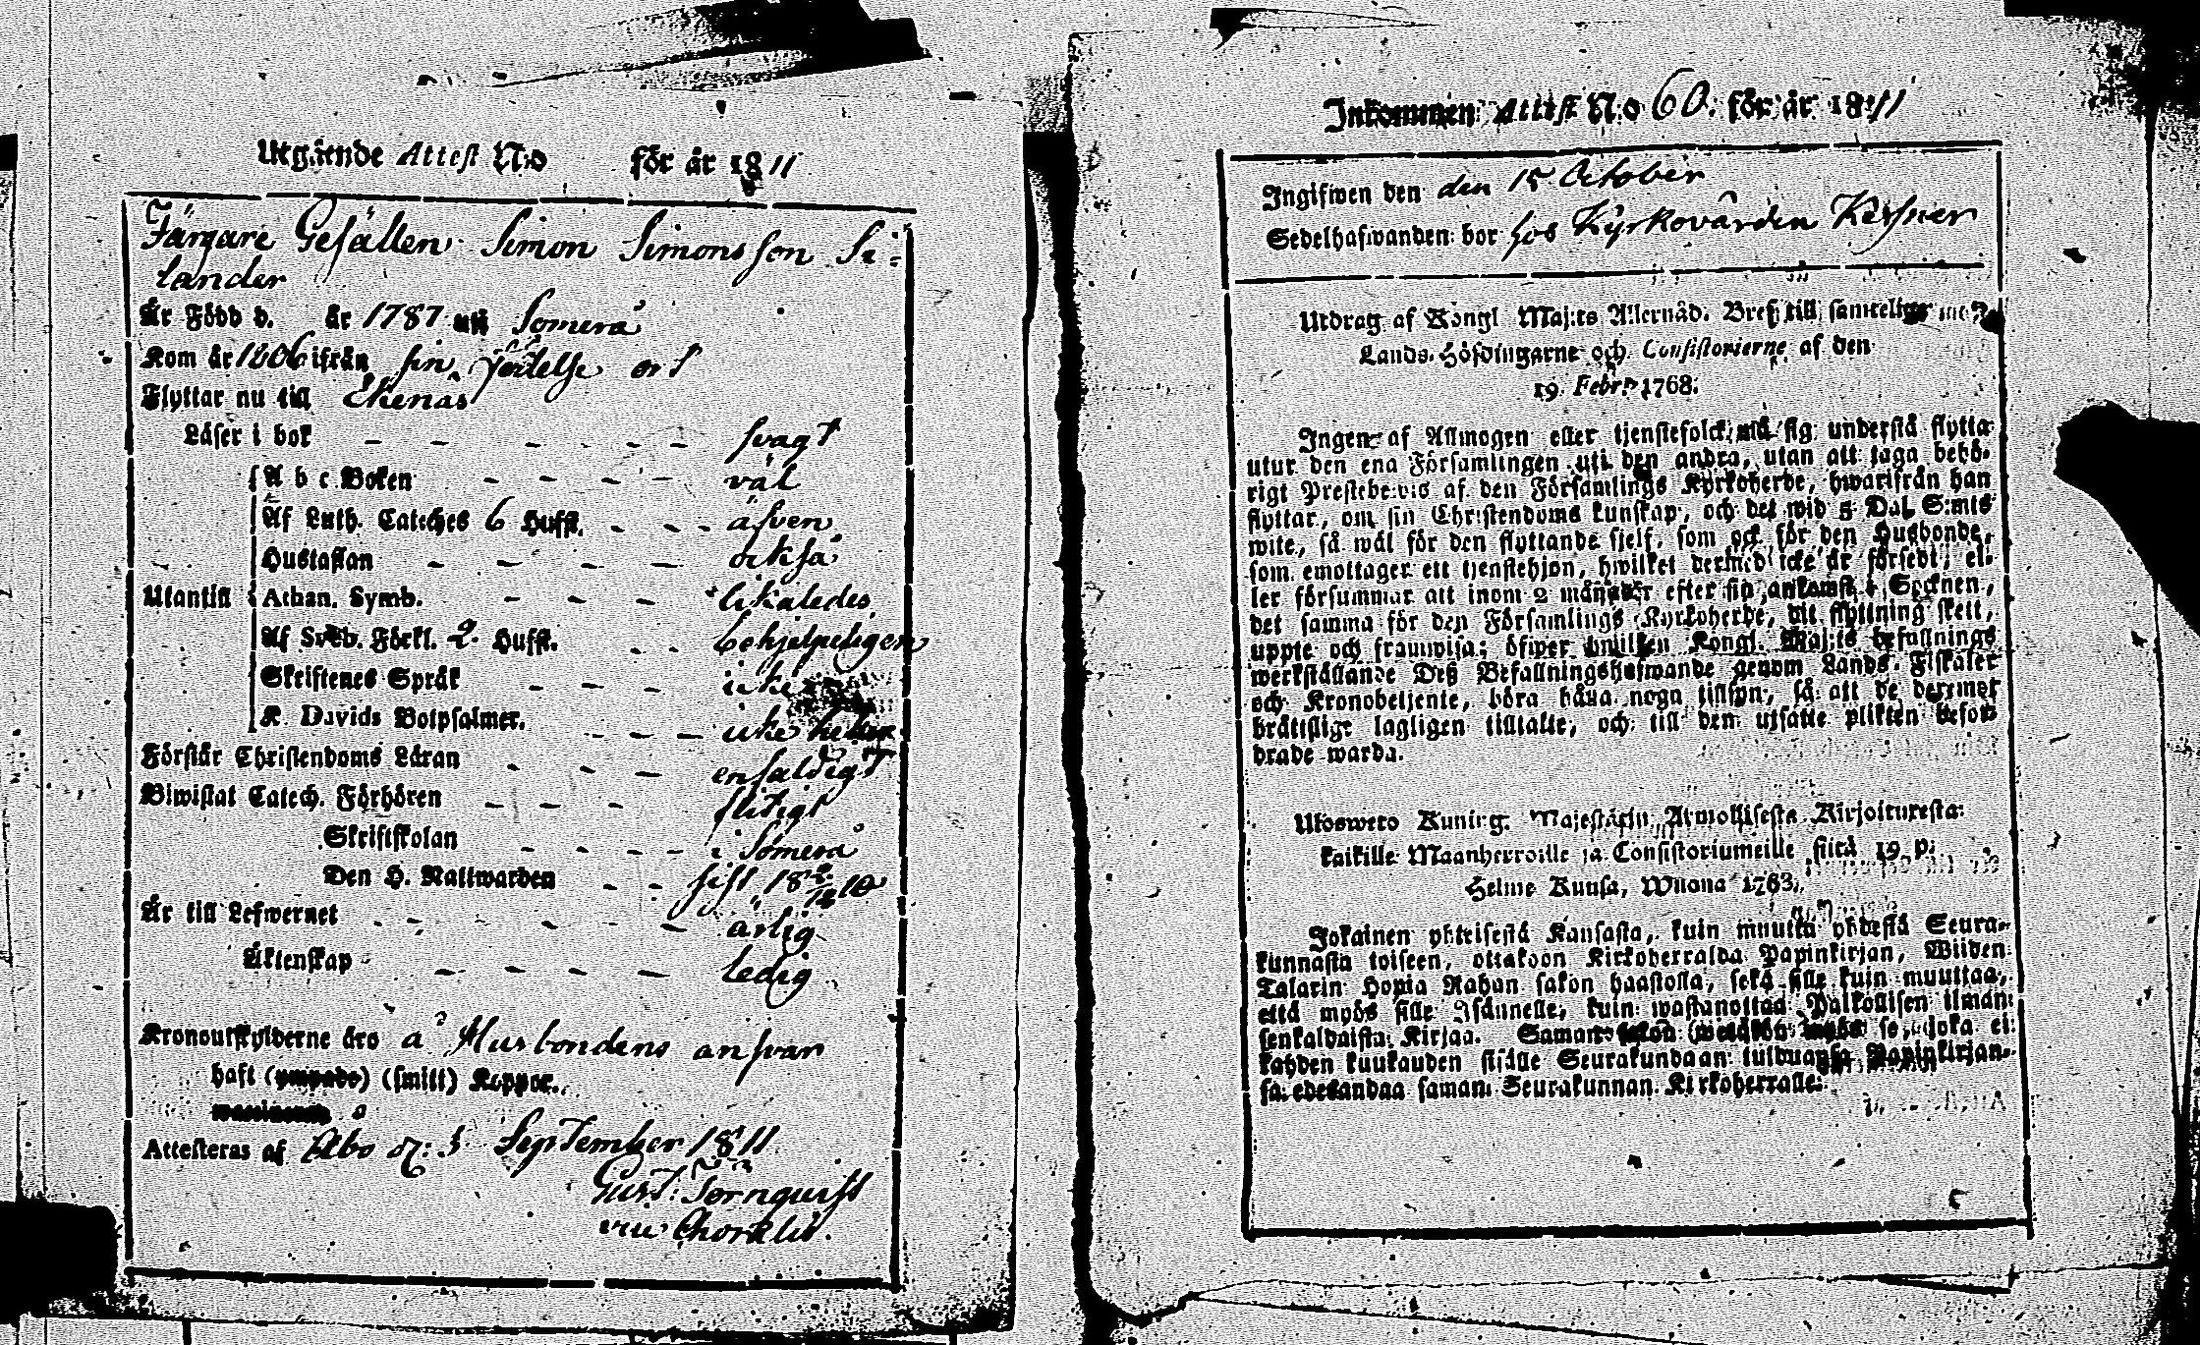 Utgående Attest N:o för år 1811
Färgare Gesällen Simon Simonsson Se=
lander
Är Född d. år 1787 uti Somerå
Kom år 1806 ifrån sin födelse ort
Flyttar nu till Ekenäs
Läser i bok - - - - - svagt
A b c Boken - - - - väl
Af Luth. Cateches 6 Hufst. - - - äfven
Hustaflan - - - - också
Utantill Athan. Symb. - - - likaledes
Af Sveb. Förkl. 2 Hufst. - - behjelpeligen
Skriftenes Språk - - - icke
K. Davids Botpsalmer. - - - icke heller
Förstår Christendoms Läran - - - enfaldigt
Biwistat Catech. Förhören - - - flitigt
Skriftskolan - - - - i Somerå
Den H. Nattwarden - - sist 18
Är till Lefwernet - - - - - ärlig
Äktenskap - - - - ledig
Kronoutskylderne äro å Husbondens ansvar
haft (ympade) (smitt) Koppor.
Attesteras af Åbo d. 5 September 1811
Gust. Törnquist
Inkommen Attest N:o 60. för år 1811
Ingifwen den den 15 October
Sedelhafwanden bor hos Kyrkovärden
Utdrag af Kongl Maj:ts Allernåd. Bref till samtelige
Lands-Höfdingarne och Consistorierne af den
19. Febr. 1768.
Ingen af Allmogen eller tjenstefolck må sig understå flytta
utur den ena Församlingen uti den andra, utan att taga behö-
rigt Prestebewis af den Församlings Kyrkoherde, hwarifrån han
flyttar, om sin Christendoms kunskap, och det wid 5 Dal. S:mts
wite, så wäl för den flyttande sjelf, som ock för den Husbonde,
som emottager ett tjenstehjon, hwilket dermed icke är försedt, el-
ler försummar att inom 2 månader efter sin ankomst i Socknen,
det samma för den Församlings Kyrkoherde, dit flyttning skett,
uppte och framwisa; öfwer hwilken Kongl. Maj:ts befallnings
werkställande Deß Befallningshafwande genom Lands-Fiskaler
och Kronobetjente, böra hafwa noga tillsyn, så att de deremot
bråttslige lagligen tilltalte, och till den utsatte plikten befor-
drade warda.
Uloswero Kuning. Majestätin Armollisesta Kirjoituresta
kaikille Maanherroille ja Consistoriumeille siitä 19. p.
Helme Kuusa, Wuona 1763.
Jokainen yhteisestä Kansasta, kuin muutta yhdestä Seura-
kunnasta toiseen, ottakoon Kirkoherralda Papinkirjan, Wiiden
Talarin Hopia Rahan sakon haastolla, sekä sille kuin muuttaa,
että myös sille Isännelle, kuin wastanottaa Palkollisen ilman
senkaldaista Kirjaa. Saman sakon se joka ei
kahden kuukauden sisälle Seurakundaan tulduansa Papinkirjan-
sa edesandaa saman Seurakunnan Kirkoherralle.